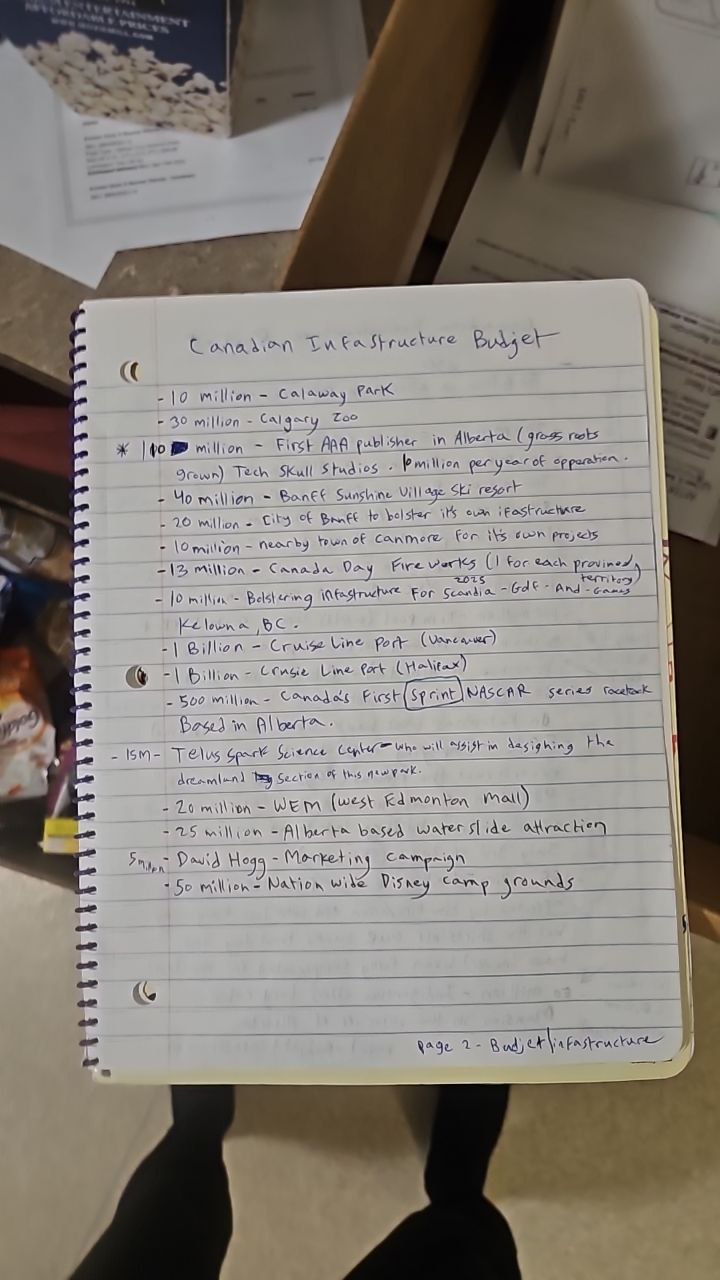 ENTERTAINMENT
AFFORDABLE PRICES
Canadian Infastructure Budjet
- 10 million - Calaway Park
- 30 million - Calgary Zoo
* 100 million - First AAA publisher in Alberta (grass roots
grown) Tech Skull Studios. 10 million per year of opperation.
- 40 million - Banff Sunshine Village Ski resort
- 20 million - City of Banff to bolster it's own ifastructure
- 10 million - nearby town of canmore for it's own projects
- 13 million - Canada Day Fireworks (1 for each province,
2025 territory)
- 10 million - Bolstering infastructure For Scandia - Golf - And - Games
Kelowna, BC.
- 1 Billion - Cruise Line port (Vancouver)
- 1 Billion - Crusie Line Port (Halifax)
- 500 million - Canada's First Sprint NASCAR series racetack
Based in Alberta.
- 15M - Telus Spark Science Center - who will assist in desighing the
dreamland section of this new park.
- 20 million - WEM (west Edmonton mall)
- 25 million - Alberta based waterslide attraction
5 million - David Hogg - Marketing campaign
- 50 million - Nation wide Disney camp grounds
page 2 - Budjet/infastructure